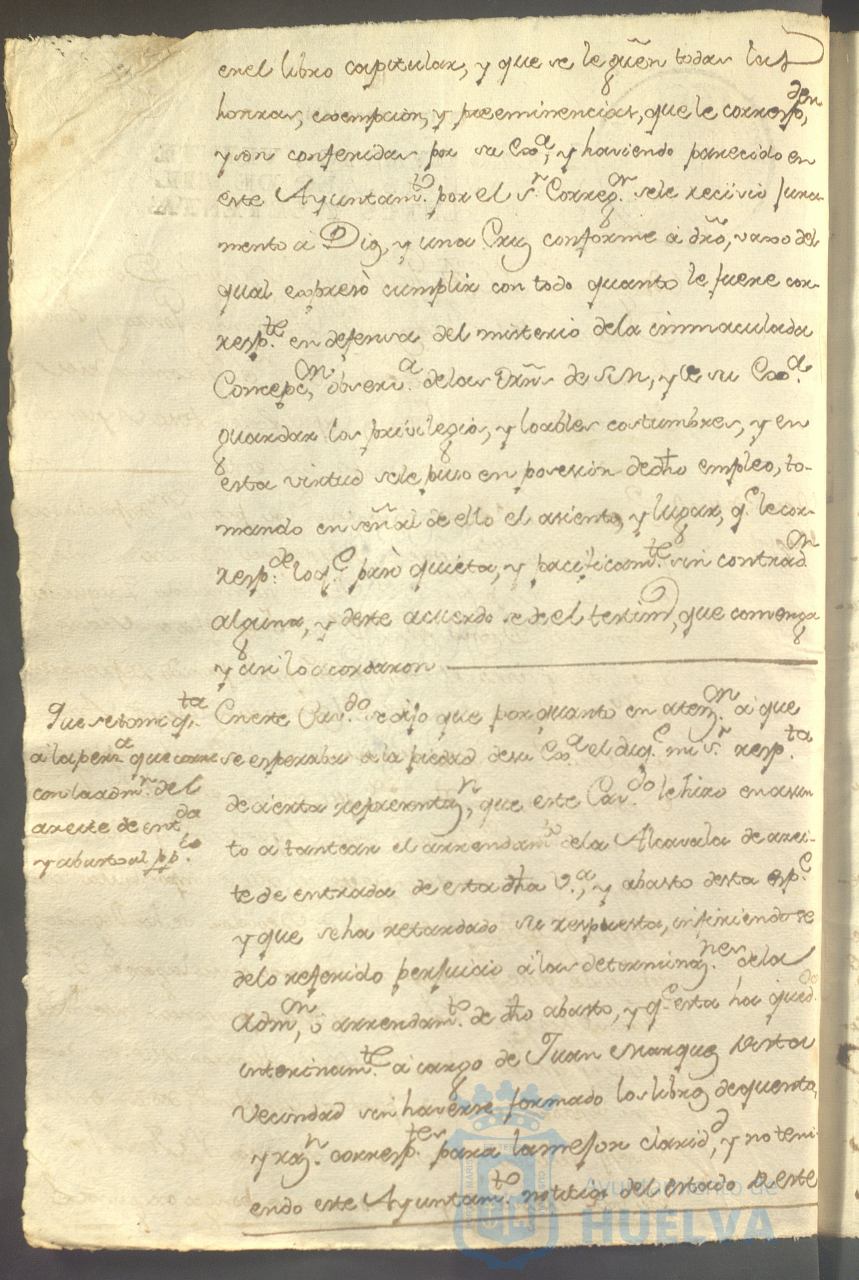 en el libro capitular, y que se le guñ todas las
honras, exempcion, y preeminencias, que le correspden,
y son conferidas por su Exa, y haviendo parecido en
este Ayuntamto. por el sr. Corregor. sele recivio jura-
mento a Dios, y una Cruz conforme a dro, vaxo del
qual expresò cumplir con todo quanto le fuere cor-
respte. en defensa del misterio dela immaculada
Concepcon, observa. delas Orns de S.M, y de su Exa.
guardar los privilegios, y loables costumbres, y en
esta virtud sele puso en posesion de dho empleo, to-
mando en señal de ello el asiento, y lugar, qe. le cor-
respde. lo qe. pasò quieta, y pacificamte. sin contradon
alguna, y deste acuerdo se de el testimo, que convenga
y asi lo acordaron
Que se tome qta.
a la persa que corre
con la admon. del
aceite de entda
y abasto al ppco.
En este Cavdo. se dijo que por quanto en atenzon. a que
se esperaba dela piedad desu Exa. el duqe. mi sr. respta.
de cierta representazn, que este Cavdo. le hizo en asun-
to a tantear el arrendamto. dela Alcavala de acei-
te de entrada de esta dha Va., y abasto desta espe.
y que se ha retardado su respuesta, infiriendose
delo referido perjuicio a las determinaznes. dela
Admon, ò arrendamto. de dho abasto, y qe. esta ha quedado
interinamte. a cargo de Juan Marquez desta
Vecindad sin haverse formado los libros de quenta,
y razn. corresptes para la mejor claridd, y no teni-
endo este Ayuntamto. noticia del estado de este
Ayuntamiento de
HUELVA